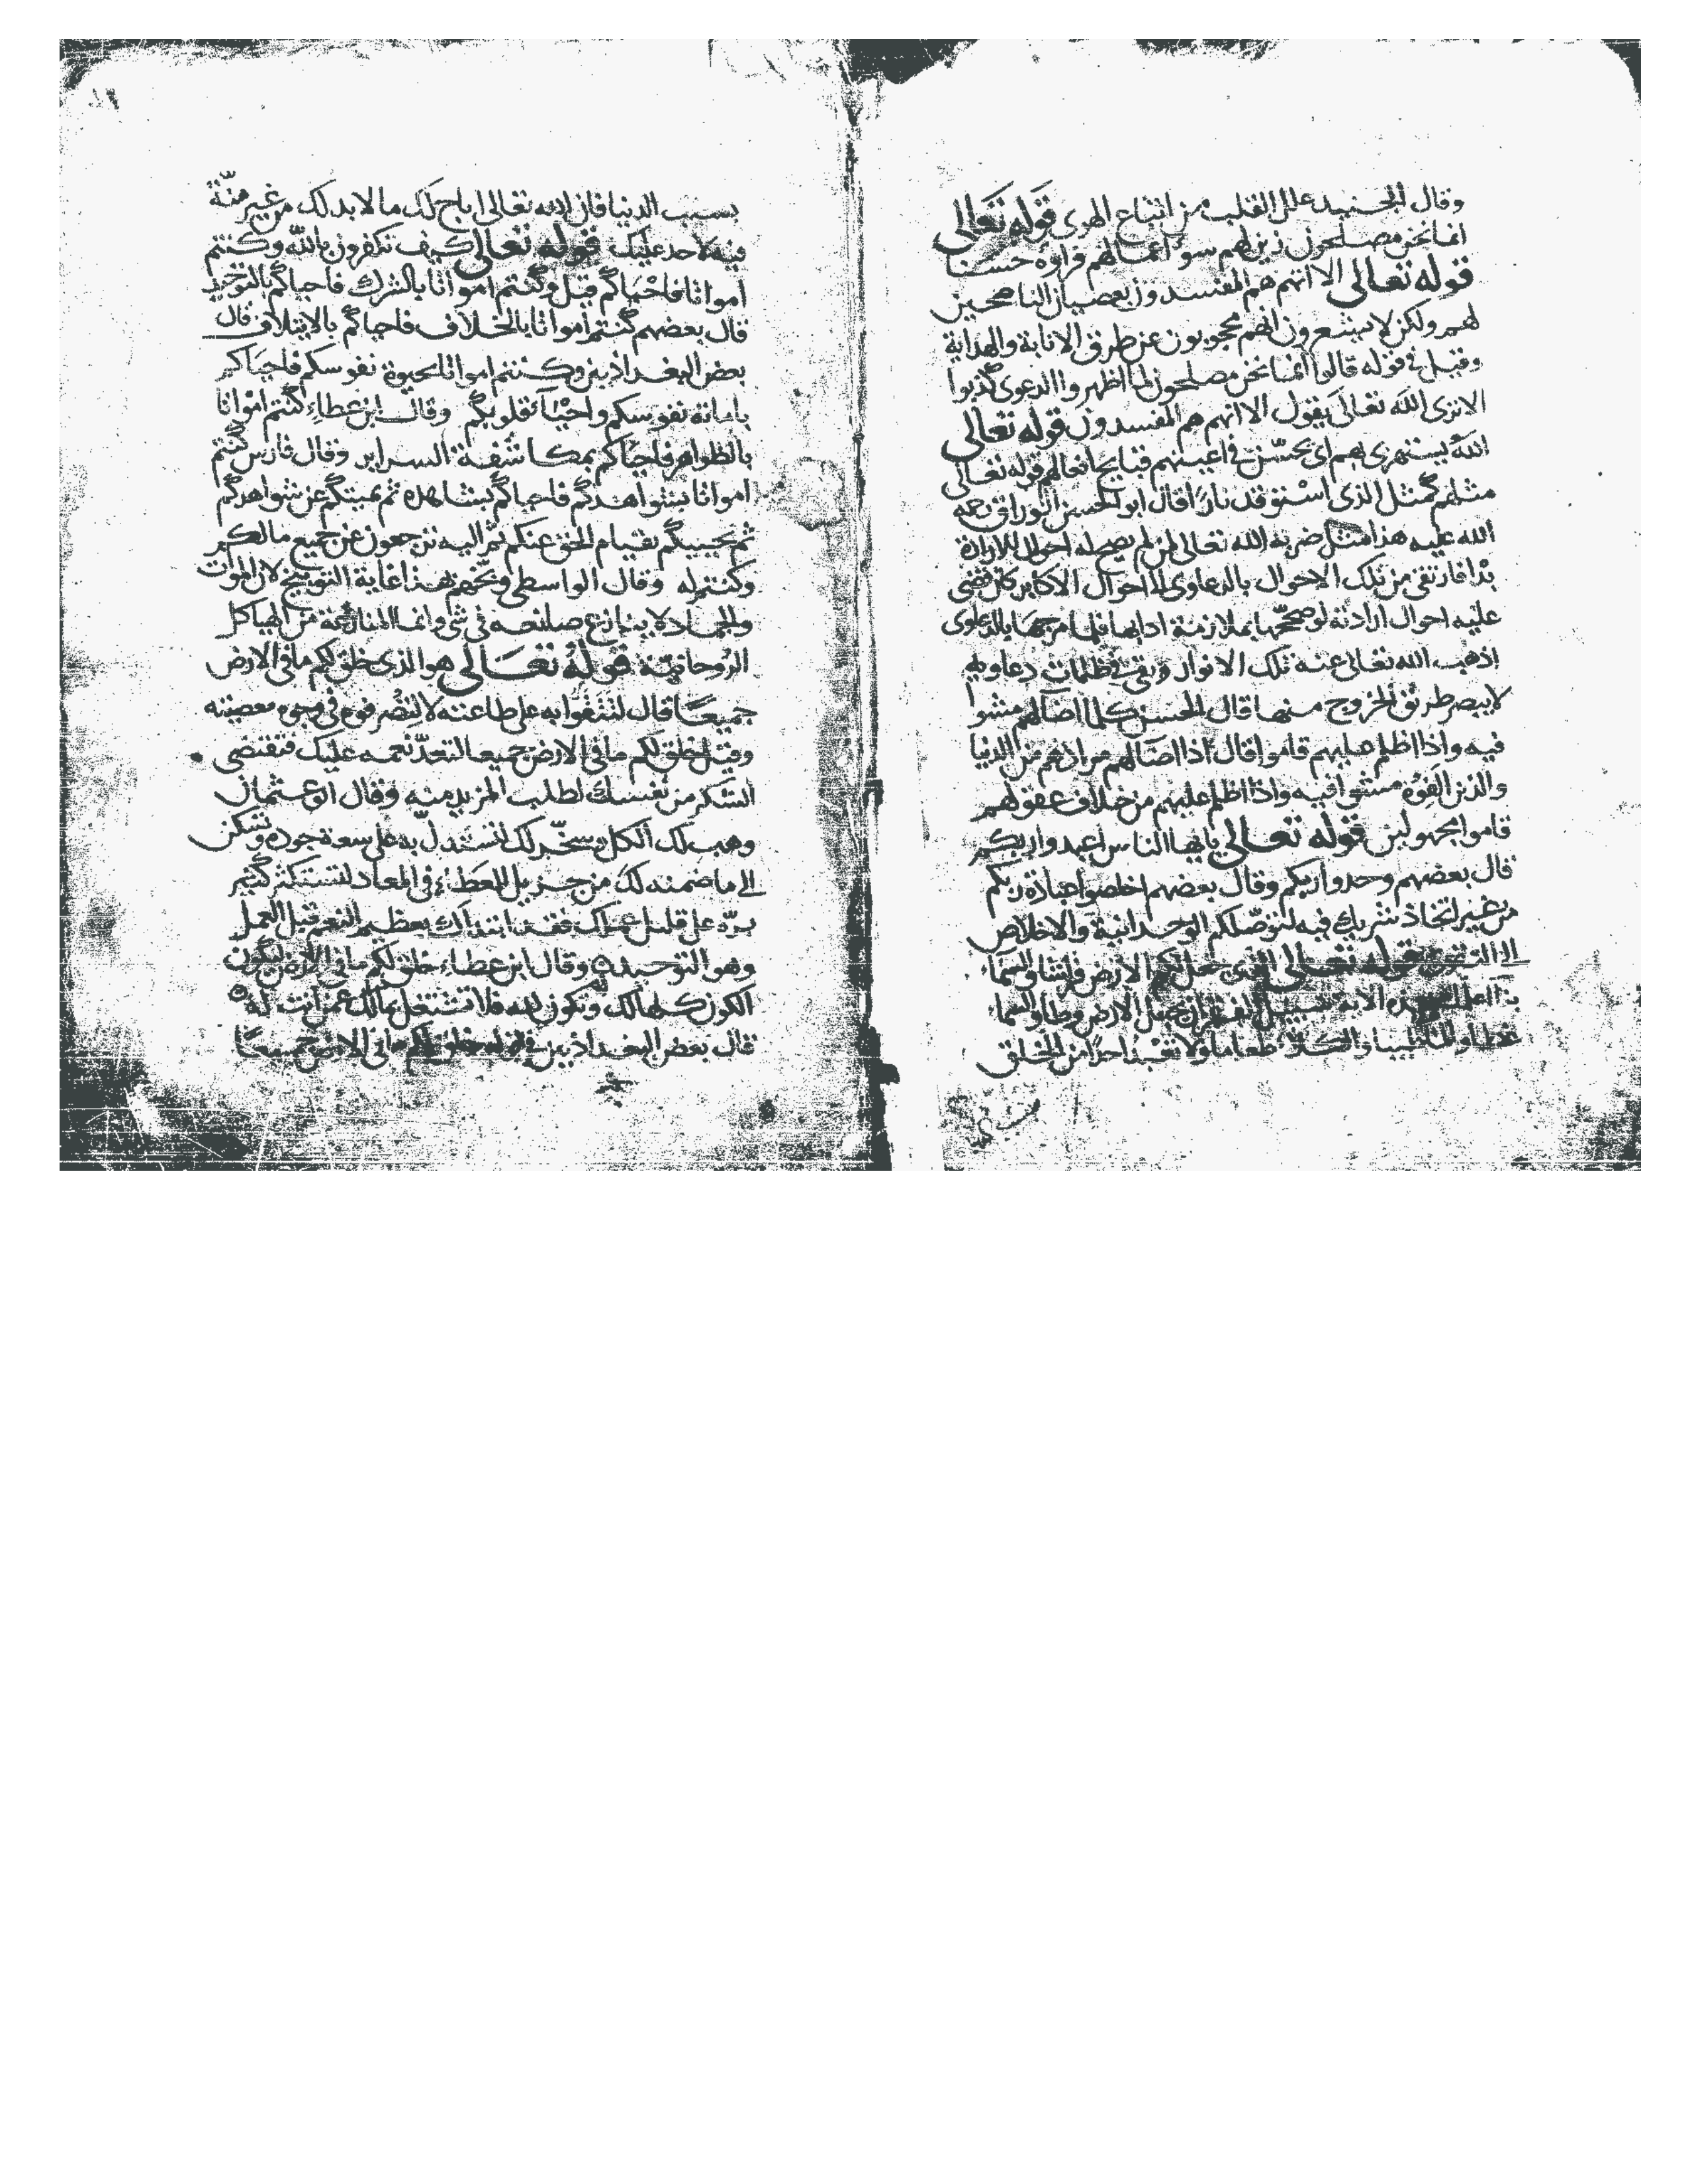 وقال الجنيد علل القلب من اتباع الهوى قوله تعالى
انما نحن مصلحون زين لهم سوء اعمالهم فراوه حسنا
قوله تعالى الا انهم هم المفسدون بعصيان الناصحين
لهم ولكن لا يشعرون انهم محجوبون عن طرق الانابة والهداية
وقيل في قوله قالوا انما نحن مصلحون لما اظهروا الدعوى كذبوا
الا ترى الله تعالى يقول الا انهم هم المفسدون قوله تعالى
الله يستهزئ بهم اي يحسّن في اعينهم قبايح افعالهم قوله تعالى
مثلهم كمثل الذي استوقد نارا قال ابو الحسن الوراق رحمة
الله عليه هذا مثل ضربه الله تعالى لمن لم يصح له احوال الارادة
بدا فارتقى من تلك الاحوال بالدعاوى الى احوال الاكابر كان يضئ
عليه احوال ارادته لو صححها بملازمة ادابها فلما مزجها بالدعاوى
اذهب الله تعالى عنه تلك الانوار وبقي في ظلمات دعاويه
لا يبصر طريق الخروج منها قال الحسن كلما اضا لهم مشوا
فيه واذا اظلم عليهم قاموا قال اذا اضا لهم مرادهم من الدنيا
والدين الفوه مشوا فيه واذا اظلم عليهم من خلاف عقولهم
قاموا مجهولين قوله تعالى يايها الناس اعبدوا ربكم
قال بعضهم وحدوا ربكم وقال بعضهم اخلصوا عبادة ربكم
من غير اتخاذ شريك فيه لتوصلكم الوحدانية والاخلاص
الى التقوى قوله تعالى الذي جعل لكم الارض فراشا والسماء
بنا اعلمك في هذه الاية سبيل الفقر ان تجعل الارض وطا والسما
غطا والما طيبا والكلا طعاما ولا تعبد احدا من الخلق
بسبب الدنيا فان الله تعالى اباح لك ما لا بد لك من غير منّة
فيه لاحد عليك قوله تعالى كيف تكفرون بالله وكنتم
امواتا فاحياكم قيل وكنتم امواتا بالشرك فاحياكم بالتوحيد
قال بعضهم كنتم امواتا بالخلاف فاحياكم بالايتلاف قال
بعض البغداذيين وكنتم امواتا بحيوة نفوسكم فاحياكم
باماتة نفوسكم واحيا قلوبكم وقال ابن عطاء كنتم امواتا
بالظواهر فاحياكم بمكاشفة السراير وقال فارس كنتم
امواتا بشواهدكم فاحياكم بشاهده ثم يميتكم عن شواهدكم
ثم يحييكم بقيام الحق عنكم ثم اليه ترجعون عن جميع مالكم
وكنتم له وقال الواسطي وبخهم بهذا غاية التوبيخ لان الموات
والجماد لا ينازع صانعه في شي وانما المنازعة من الهياكل
الروحانية قوله تعالى هو الذي خلق لكم ما في الارض
جميعا قال لتتقوا به على طاعته لا لتصرفوه في وجوه معصيته
وقيل خلق لكم ما في الارض جميعا لتعدّ نعمه عليك فتقتضي
الشكر من نفسك لطلب المزيد منه وقال ابو عثمان
وهب لك الكل وسخّر لك لتستدل به على سعة جوده وتسكن
الى ما ضمنه لك من جزيل العطاء في المعاد لتستكثر كثير
برّه على قليل عملك فقد ابتداك بعظيم النعم قبل العمل
وهو التوحيد وقال ابن عطاء خلق لكم ما في الارض ليكون
الكون كله لك وتكون لله فلا تشتغل بمالك عمن انت له
قال بعض البغداذيين في قوله خلق لكم ما في الارض جميعا